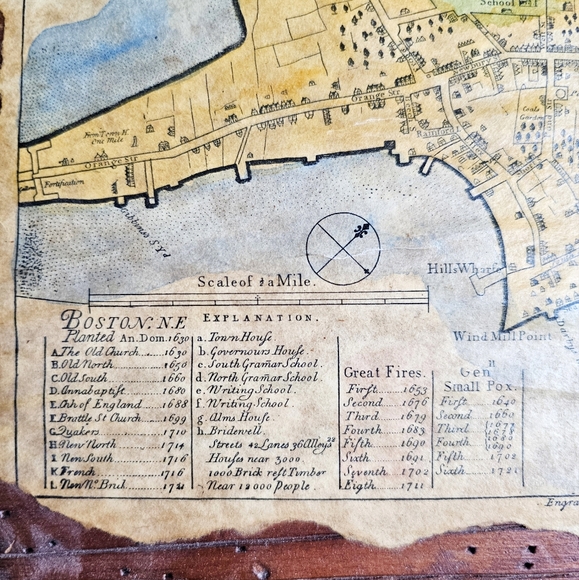 School
Newbury
Orange Str
Cools
Garden
From Town H.
One Mile
Rainsford
Orange Str
Fortification
Hills Wharfe
Scale of ½ a Mile.
Wind Mill Point
BOSTON: N.E
Planted An. Dom. 1630
A. The Old Church 1630
B. Old North 1650
C. Old South 1660
D. Annabaptist 1680
E. Chh of England 1688
F. Brattle St Church 1699
G. Quakers 1710
H. New North 1714
I New South 1716
K French 1716
L New No Brick 1721
EXPLANATION.
a. Town House
b. Governours House.
c. South Gramar School.
d. North Gramar School
e. Writing School
f. Writing School
g. Alms House
h. Bridewell
Streets 42 Lanes 36 Alleys 22
Houses near 3000
1000 Brick rest Timber
Near 12000 People
Great Fires.
First 1653
Second 1676
Third 1679
Fourth 1683
Fifth 1690
Sixth 1691
Seventh 1702
Eigth 1711
Gen ll
Small Pox.
First 1640
Second 1660
Third 1677 1678
Fourth 1689 1690
Fifth 1702
Sixth 1721
Engra